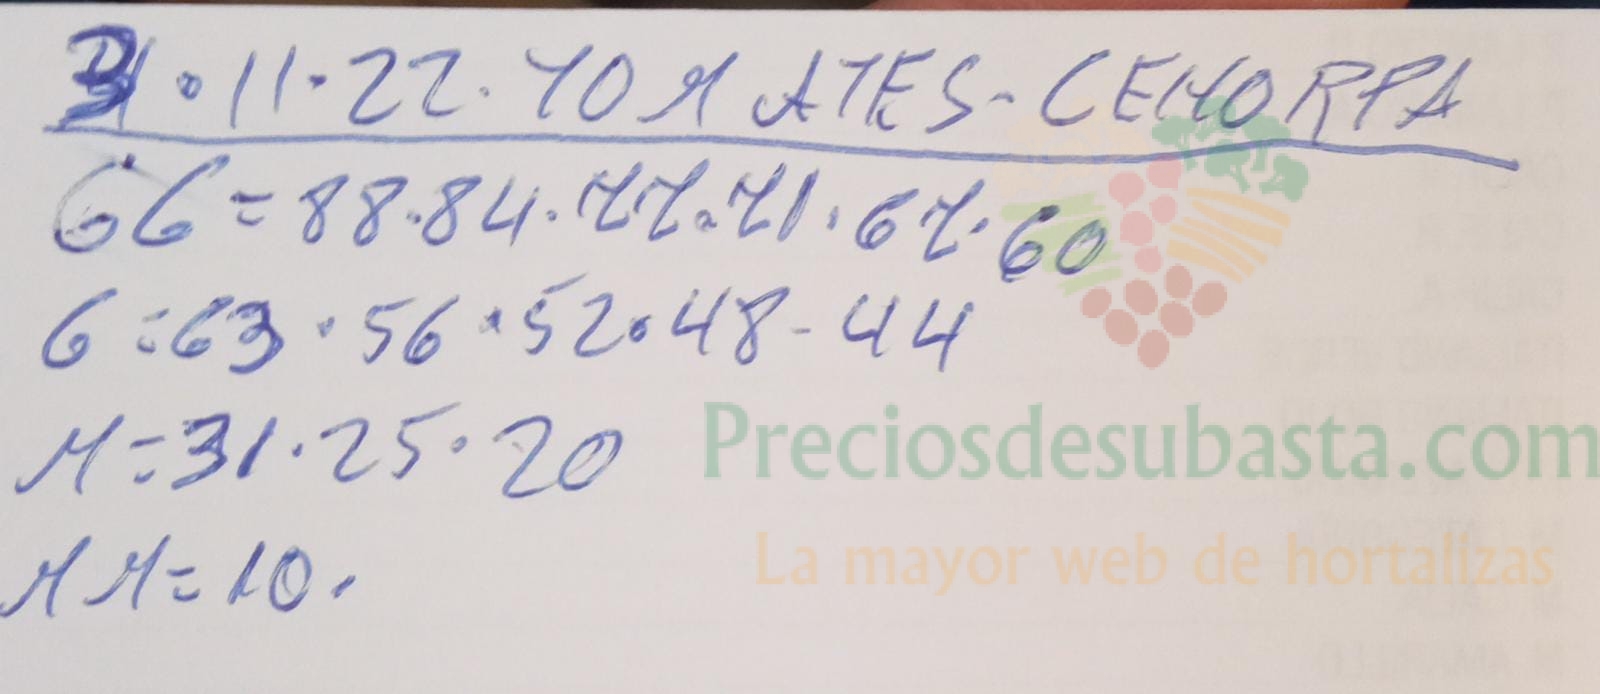 11·22·TOMATES-CEHORPA
GG=88·84·77·71·67·60
G=63·56·52·48-44
M=31·25·20
MM=10.
Preciosdesubasta.com
La mayor web de hortalizas